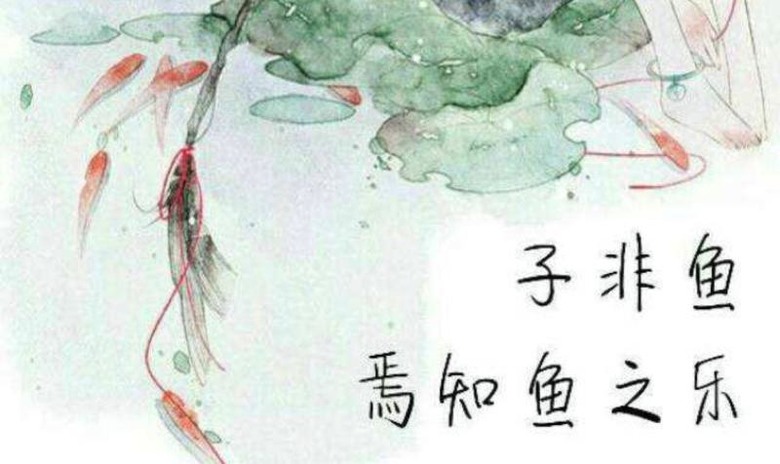 子非鱼
焉知鱼之乐